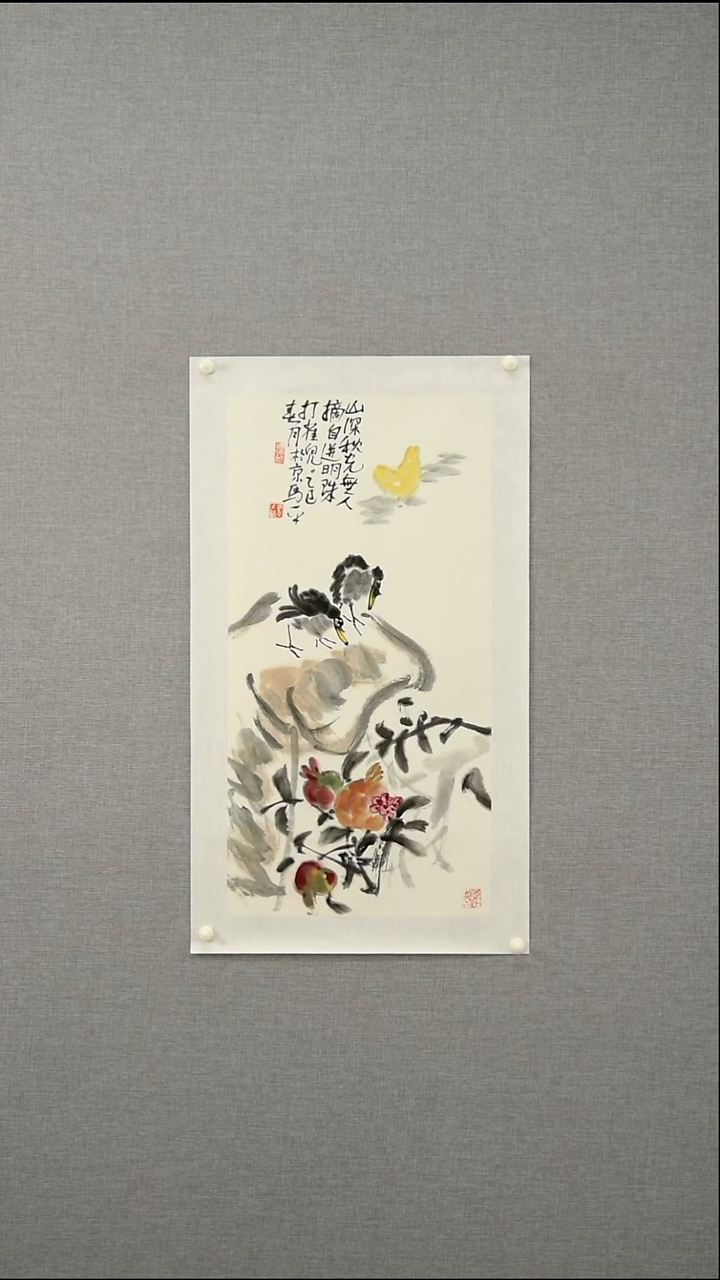 山深秋老無人
摘自迸明珠
打雀兒乙巳
春月於京馬一平